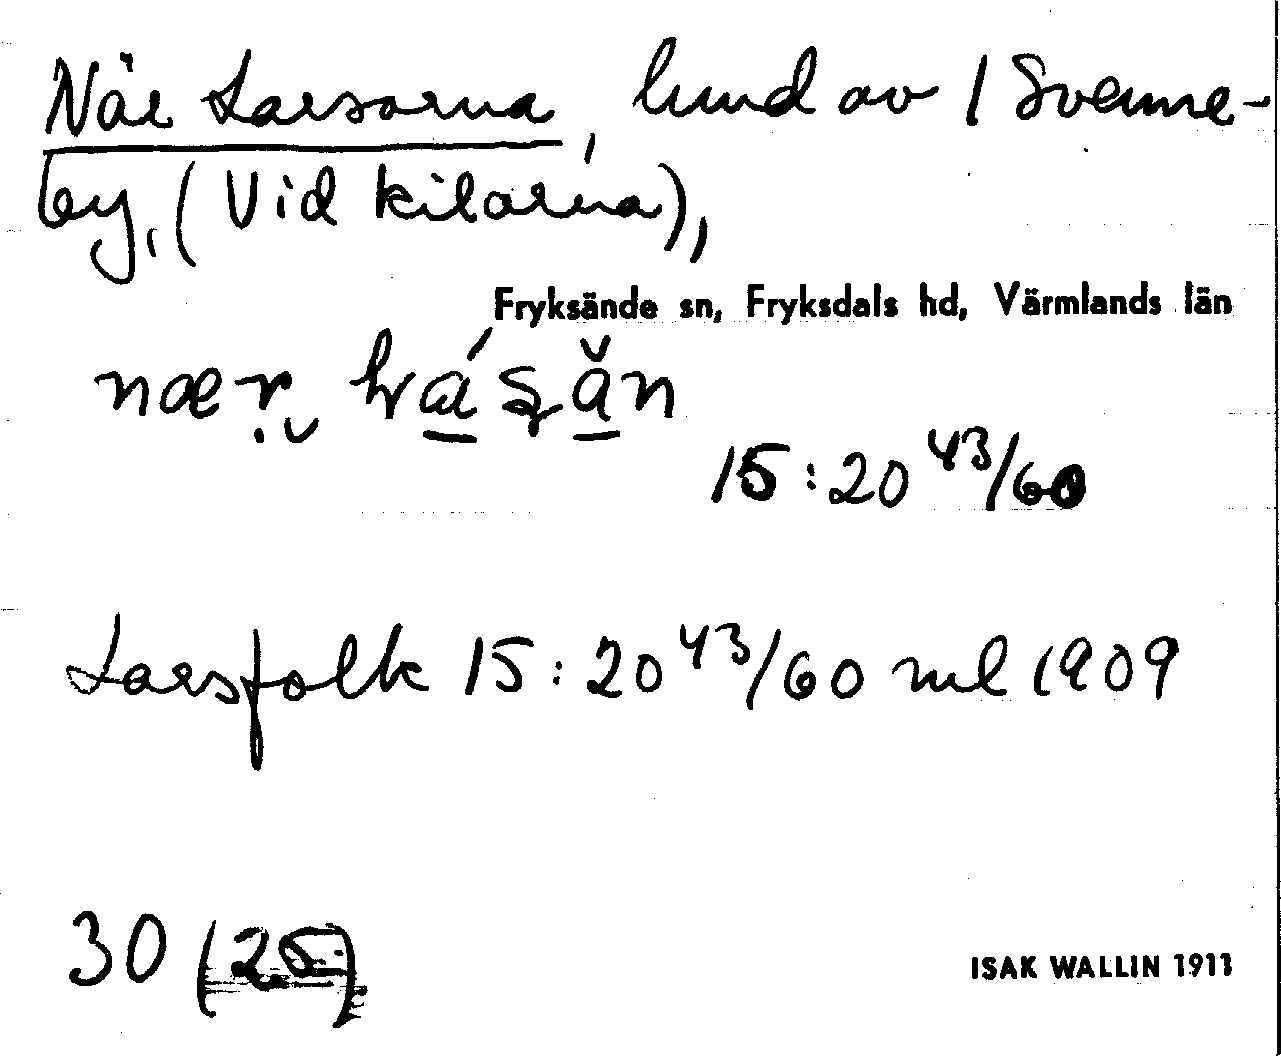 När Larsarna, lund av 1 Svenne-
by, (Vid kilarna),
Fryksände sn, Fryksdals hd, Värmlands län
15:20 43/60
Larsfolk 15:20 43/60 ml 1909
30 (25)
ISAK WALLIN 1911